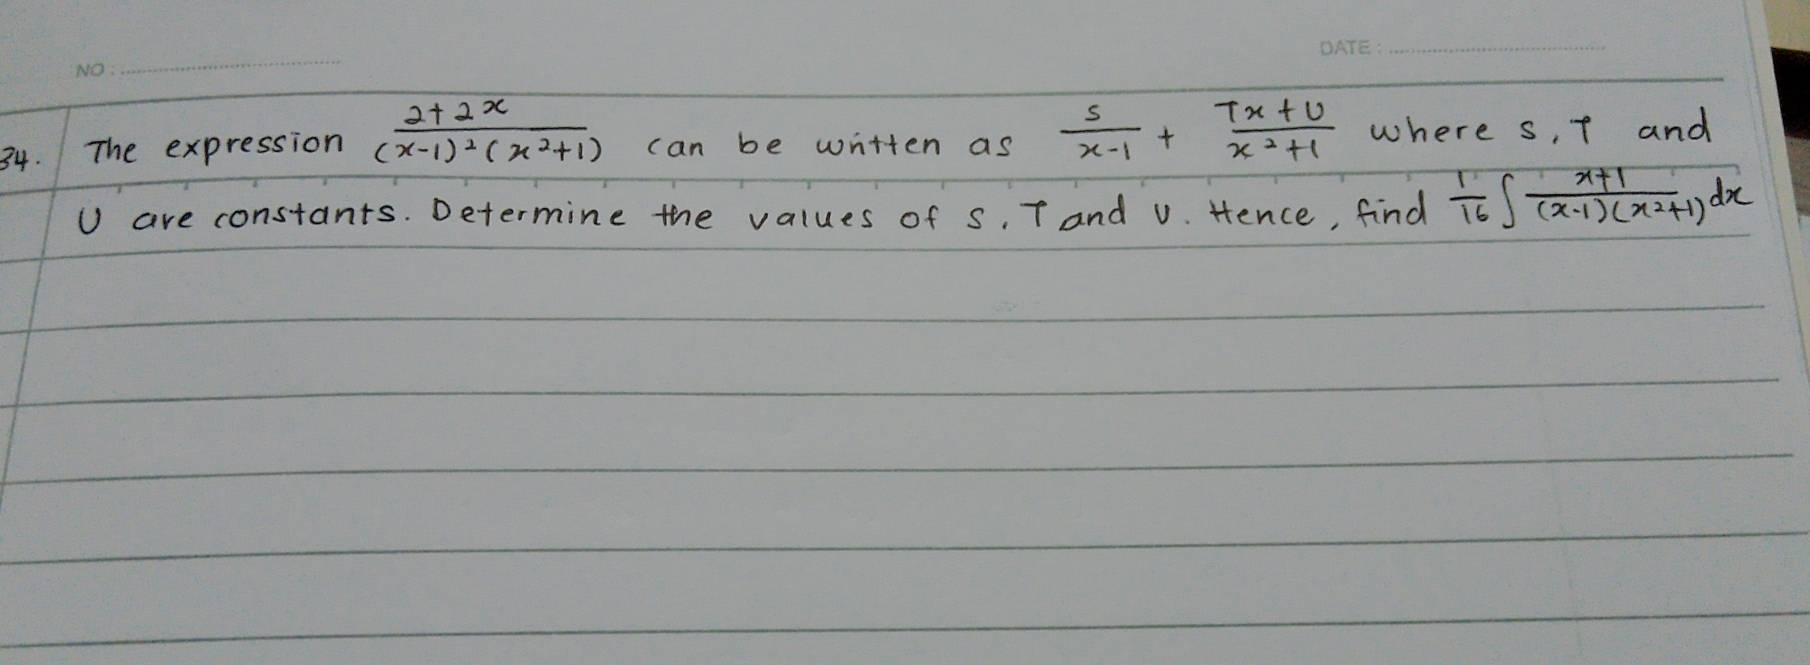 NO : DATE :
34. The expression (2+2x)/((x-1)²(x²+1)) can be written as s/(x-1) + (Tx+U)/(x²+1) where s, T and
U are constants. Determine the values of s, T and U. Hence, find 1/16 ∫ (x+1)/((x-1)(x²+1)) dx